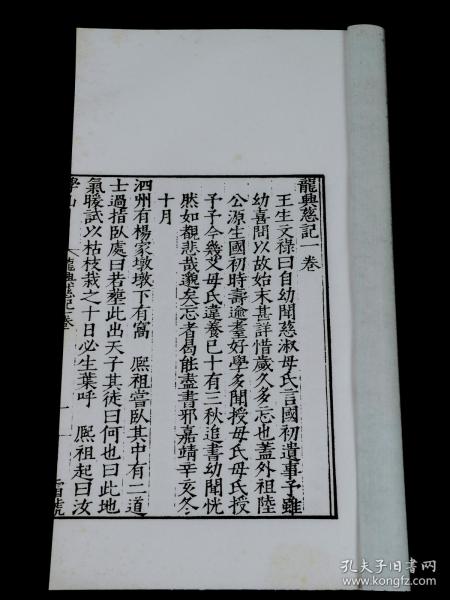 龍興慈記一卷
王生文祿曰自幼聞慈淑母氏言國初遺事予雖
幼喜問以故始末甚詳惜歲久多忘也蓋外祖陸
公源生國初時壽逾耄好學多聞授母氏母氏授
予予今幾艾母氏違養已十有三秋追書幼聞恍
然如覩悲哉邈矣忘者曷能盡書邪嘉靖辛亥冬
十月
泗州有楊家墩墩下有窩 熙祖嘗臥其中有二道
士過指臥處曰若塟此出天子其徒曰何也曰此地
氣暖試以枯枝栽之十日必生葉呼 熙祖起曰汝
龍興慈記卷
一
孔夫子旧书网
www.kongfz.com